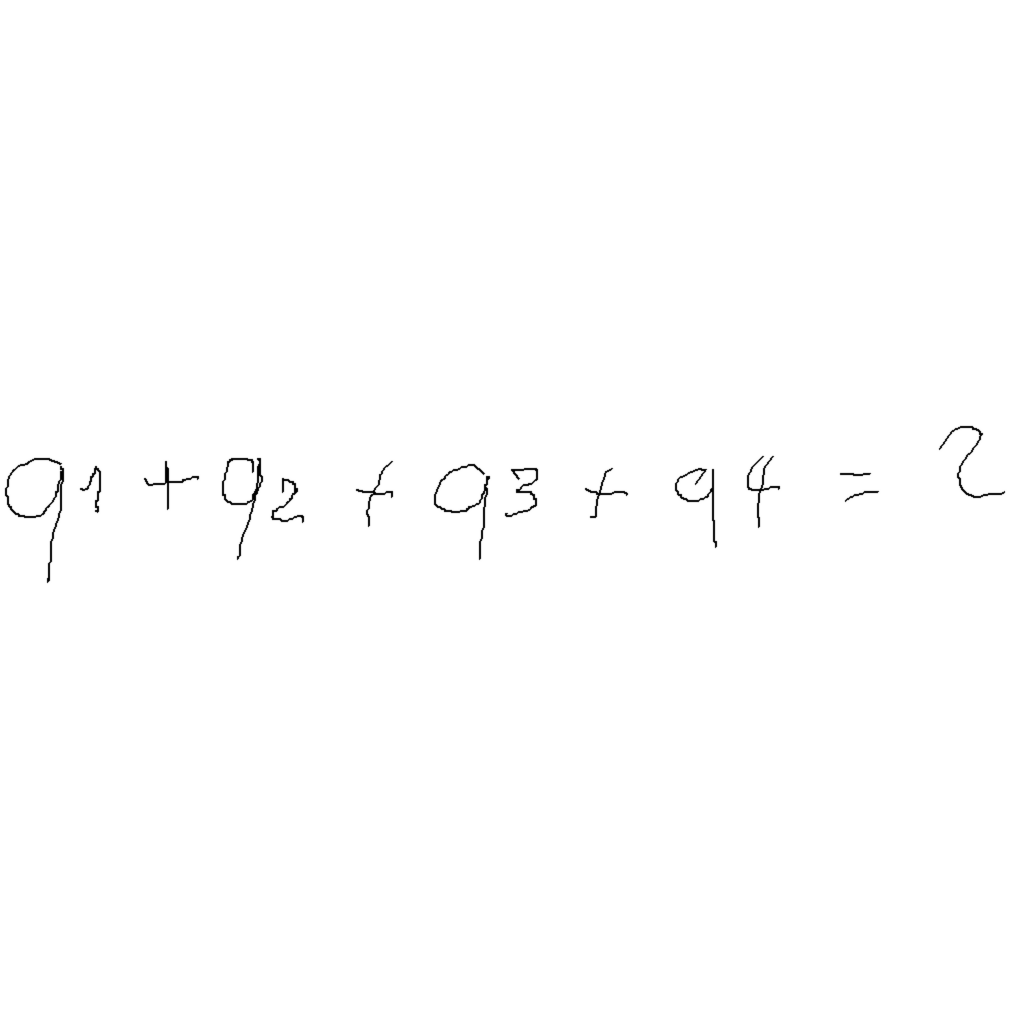 q1 + q2 + q3 + q4 = ?